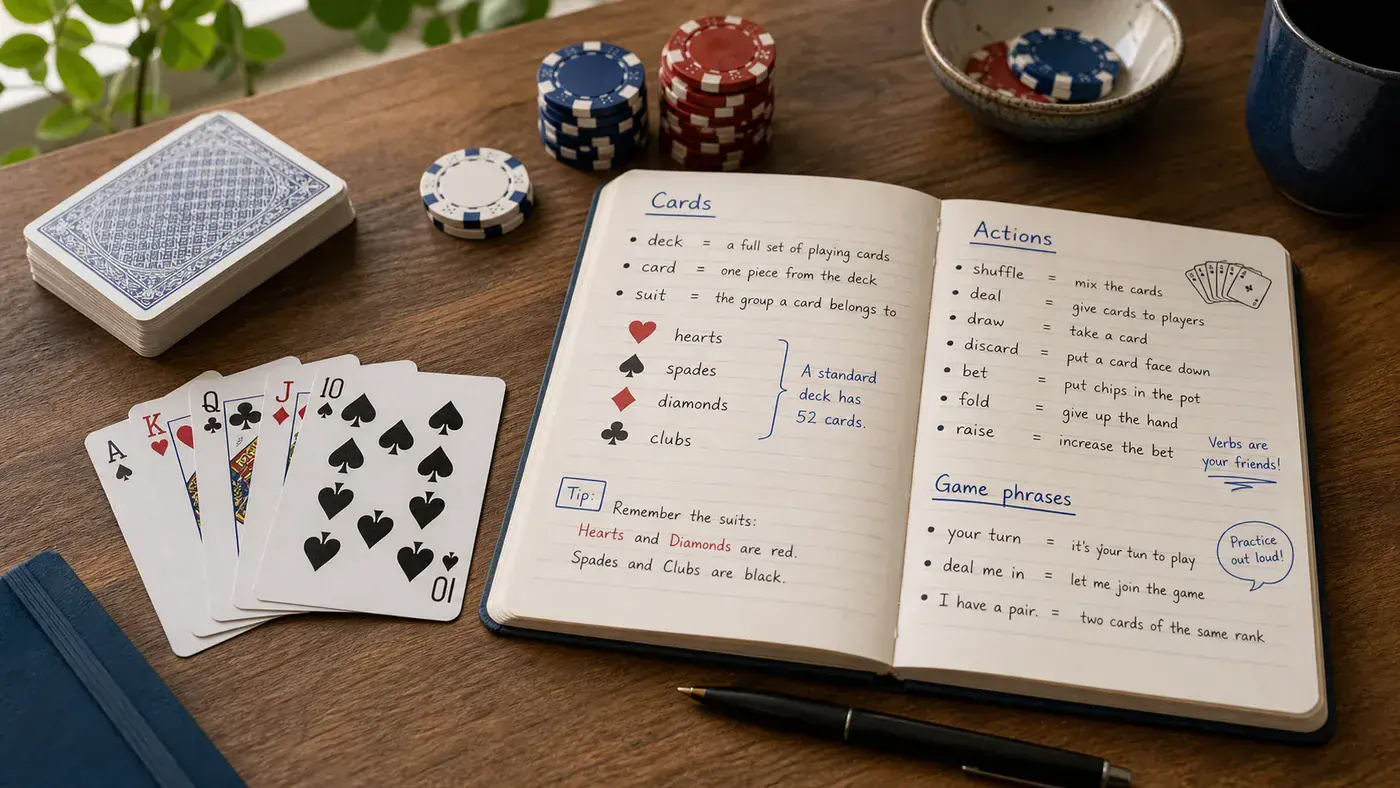 A
K
Q
J
10
10
Cards
• deck = a full set of playing cards
• card = one piece from the deck
• suit = the group a card belongs to
hearts
spades
diamonds
clubs
A standard
deck has
52 cards.
Tip:
Remember the suits:
Hearts and Diamonds are red.
Spades and Clubs are black.
Actions
• shuffle = mix the cards
• deal = give cards to players
• draw = take a card
• discard = put a card face down
• bet = put chips in the pot
• fold = give up the hand
• raise = increase the bet
Verbs are
your friends!
Game phrases
• your turn = it's your tun to play
• deal me in = let me join the game
• I have a pair. = two cards of the same rank
Practice
out loud!